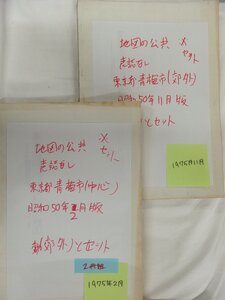 地図の公共 ×
セット
意認なし
東京都青梅市(郊外)
昭和50年11月版
とセット
1975年11月
地図の公共 ×
セット
意認なし
東京都青梅市(中心)
昭和50年2月版
(郊外)とセット
2冊組
1975年2月